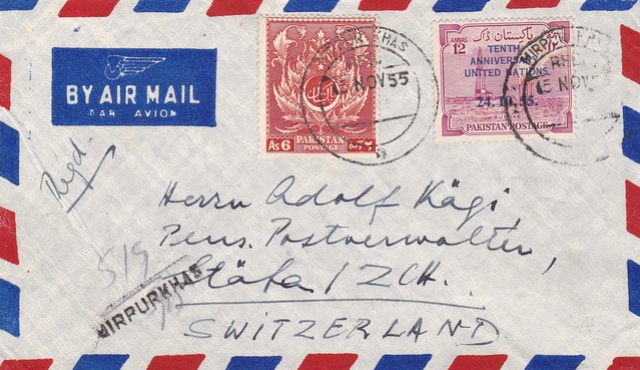 BY AIR MAIL
PAR AVION
Regd.
As 6
PAKISTAN
POSTAGE
MIRPUR KHAS
15 NOV 55
ANNAS
12
پاکستان ڈاک
TENTH
ANNIVERSARY
UNITED NATIONS.
24.10.55.
PAKISTAN POSTAGE
Herrn Adolf Kägi,
Pens. Postverwalter,
Stäfa / ZCH.
SWITZERLAND
519
MIRPURKHAS